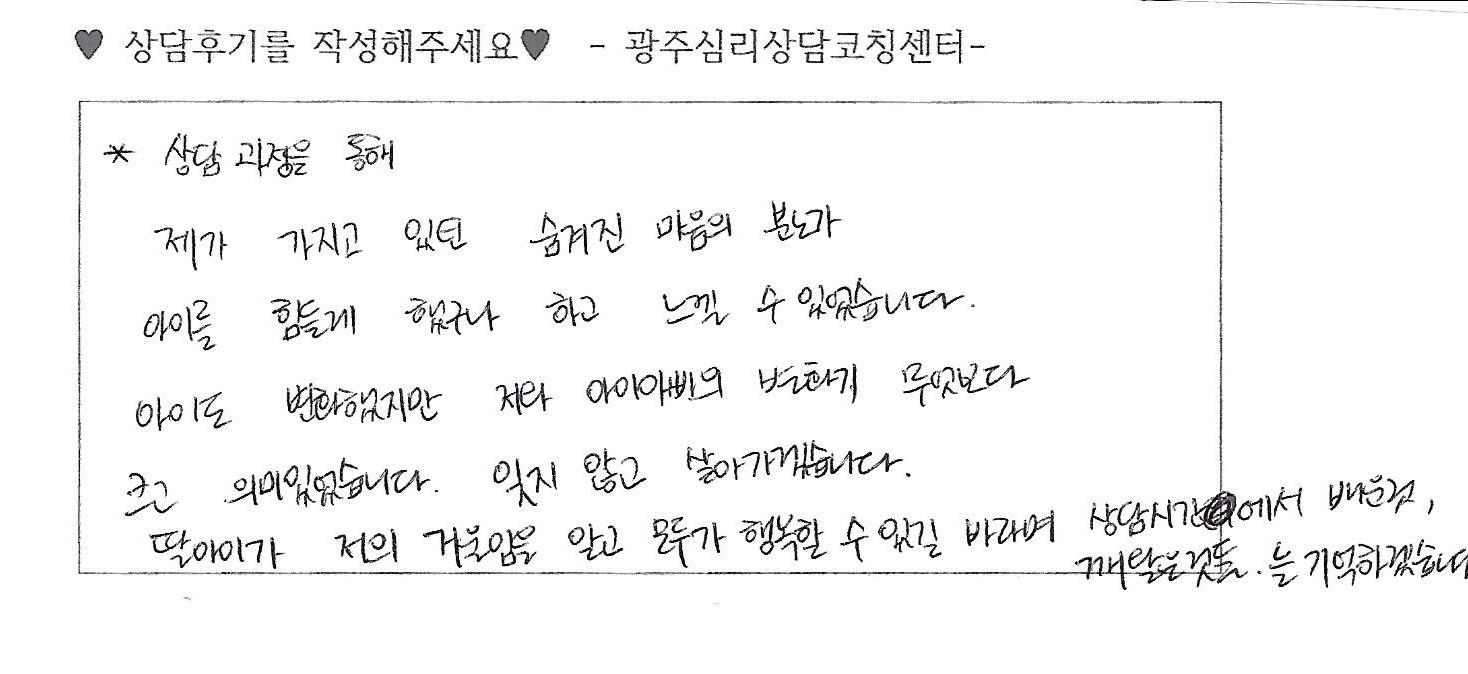 ♥ 상담후기를 작성해주세요♥ - 광주심리상담코칭센터-
* 상담 과정을 통해
제가 가지고 있던 숨겨진 마음의 분노가
아이를 힘들게 했구나 하고 느낄 수 있었습니다.
아이도 변화했지만 저와 아이아빠의 변화가 무엇보다
크고 의미있었습니다. 잊지 않고 살아가겠습니다.
딸아이가 저의 거울임을 알고 모두가 행복할 수 있길 바라며 상담시간에서 배운것,
깨달은것들.는 기억하겠습니다